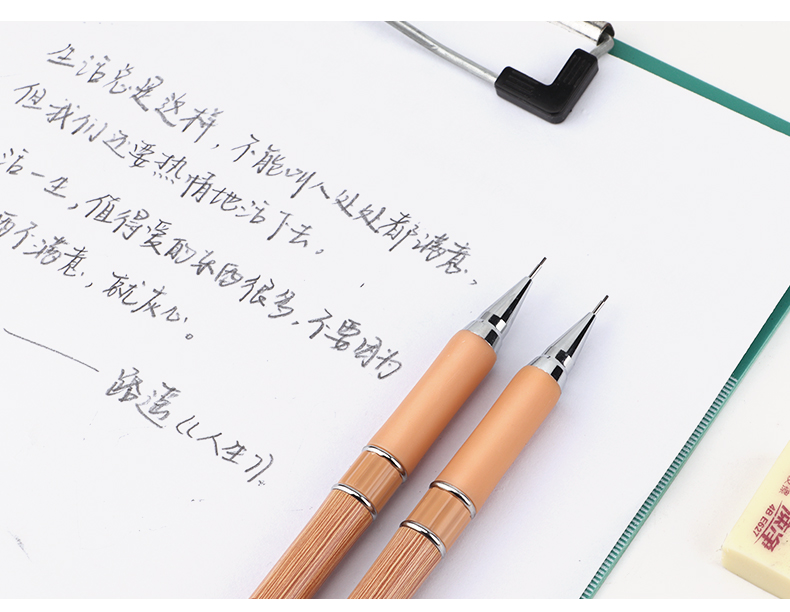 生活总是这样，不能叫人处处都满意，
但我们还要热情地活下去。
活一生，值得爱的东西很多，不要因为
不满意，就灰心。
——路遥《人生》
4B E627